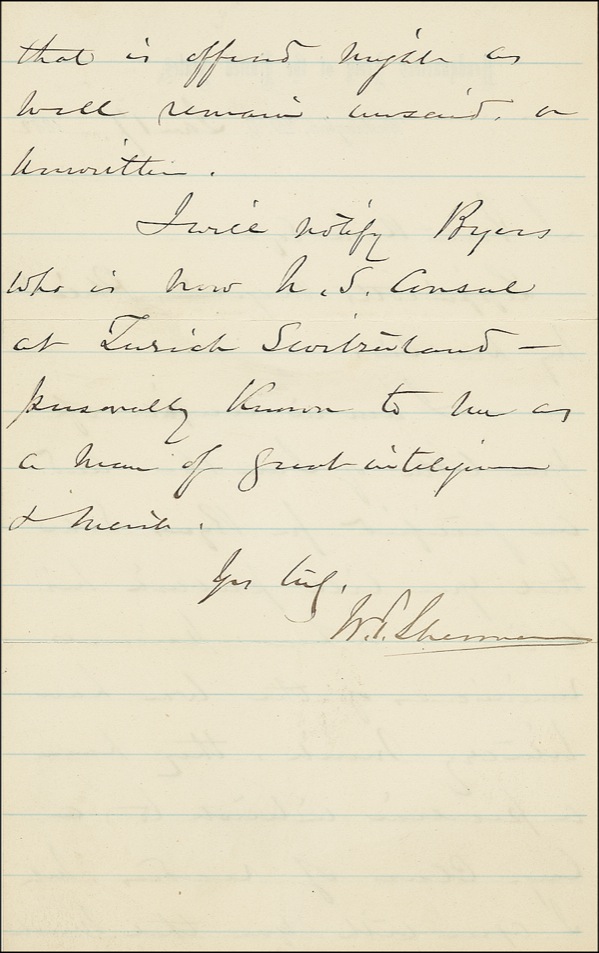 that is offered might as
well remain unsaid, or
unwritten.
I will notify Byers
who is now U.S. Consul
at Zurich Switzerland —
personally known to me as
a man of great inteligence
& merit.
Yrs truly,
W.T. Sherman